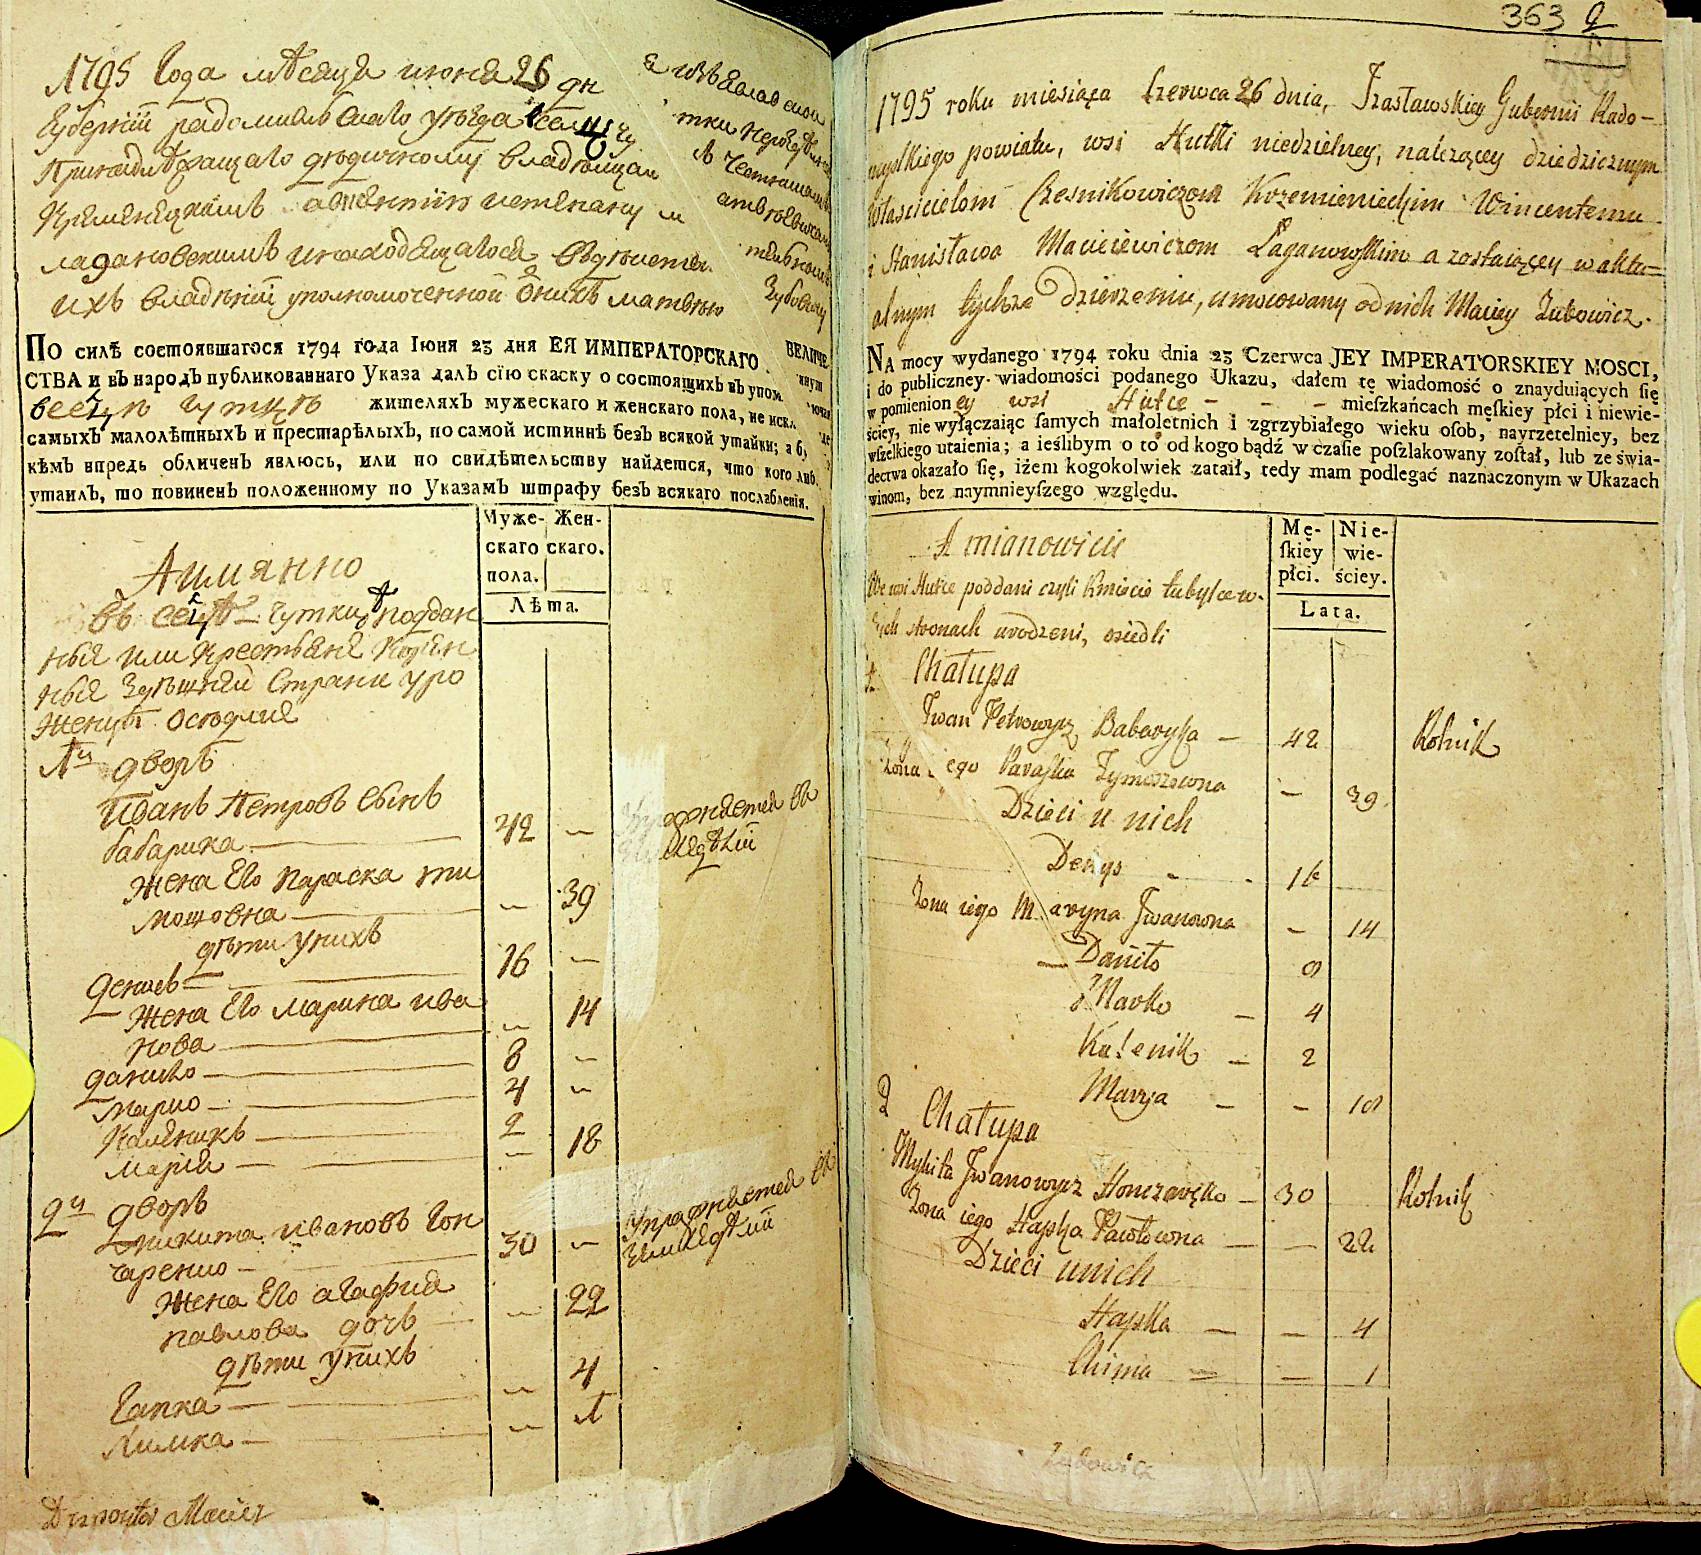 1795 Года мѣсяца июня 26 дн
Губернїи радомиslьскаго уѣзда
владѣльцам
Кременецкимъ
ихъ владѣнїи уполномоченной ѿ нихъ матвѣю
Зубовичу
ПО силѣ состоявшагося 1794 года Іюня 23 дня ЕЯ ИМПЕРАТОРСКАГО ВЕЛИЧЕ
СТВА и въ народъ публикованнаго Указа далъ сїю скаску о состоящихъ въ упом
жителяхъ мужескаго и женскаго пола, не искл
самыхъ малолѣтныхъ и престарѣлыхъ, по самой истиннѣ безъ всякой утайки; а б
кѣмъ впредь обличенъ явлюсь, или по свидѣтельству найдется, что кого либ
утаилъ, то повиненъ положенному по Указамъ штрафу безъ всякаго послабленія.
Муже- Жен-
скаго скаго.
пола.
Лѣта.
А имянно
въ селѣ гутки поддан
ныя или крестьяня
ныя Здѣшнеи Страни уро
женци оседлия
1й дворъ
Иванъ Петровъ сынъ
бабарика — 42 — Упражняется въ
земледѣлїи
Жена Его параска ти
мошовна — 39
дѣти у нихъ
денисъ — 16 —
Жена Его марина ива
нова — 14
данило — 8 —
марко — 4 —
Каленикъ — 2
марїя — 18
2й дворъ
микита ивановъ Гон
чаренко — 30 — Упражняется въ
земледѣлїи
Жена Его агафия
павлова дочь — 22
дѣти у нихъ
Гапка — 4
Химка — 1
Maciey
363
1795 roku miesiąca Czerwca 26 dnia, Izasławskiey Gubernii Rado-
myslkiego powiatu, wsi Hutki niedzielney, należącey dziedzicznym
Właścicielom Czesnikowiczom Krzemienieckim Wincentemu
i Stanisława Macieiewiczom Łaganowskim a zostaiącey w aktu=
alnym tychże dzierżeniu, umocowany od nich Maciey Zubowicz.
NA mocy wydanego 1794 roku dnia 23 Czerwca JEY IMPERATORSKIEY MOSCI,
i do publiczney wiadomości podanego Ukazu, dałem tę wiadomość o znayduiących się
w pomienioney wsi Hutce - - - mieſzkańcach męſkiey płci i niewie-
ściey, nie wyłączaiąc ſamych małoletnich i zgrzybiałego wieku oſob, nayrzetelniey, bez
wſzelkiego utaienia; a ieślibym o to od kogo bądź w czaſie poſzlakowany zoſtał, lub ze świa-
dectwa okazało ſię, iżem kogokolwiek zataił, tedy mam podlegać naznaczonym w Ukazach
winom, bez naymnieyſzego względu.
Mę- Nie-
ſkiey wie-
płci. ściey.
Lata.
A mianowicie
We wsi Hutce poddani czyli Kmiecie tubylce w
tych stronach urodzeni, osiedli
1. Chałupa
Iwan Petrowycz Babaryka — 42 Rolnik
Żona iego Paraska Tymoszowna — 39
Dzieci u nich
Denys - - 16
Żona iego Maryna Iwanowna — 14
— Daniło 8
Marko — 4
Kalenik — 2
Marya — — 18
2 Chałupa
Mykita Iwanowycz Honczarenko — 30 Rolnik
Żona iego Hapka Pawłowna — — 22
Dzieci u nich
Hapka — — 4
Chima — — 1
Zubowicz